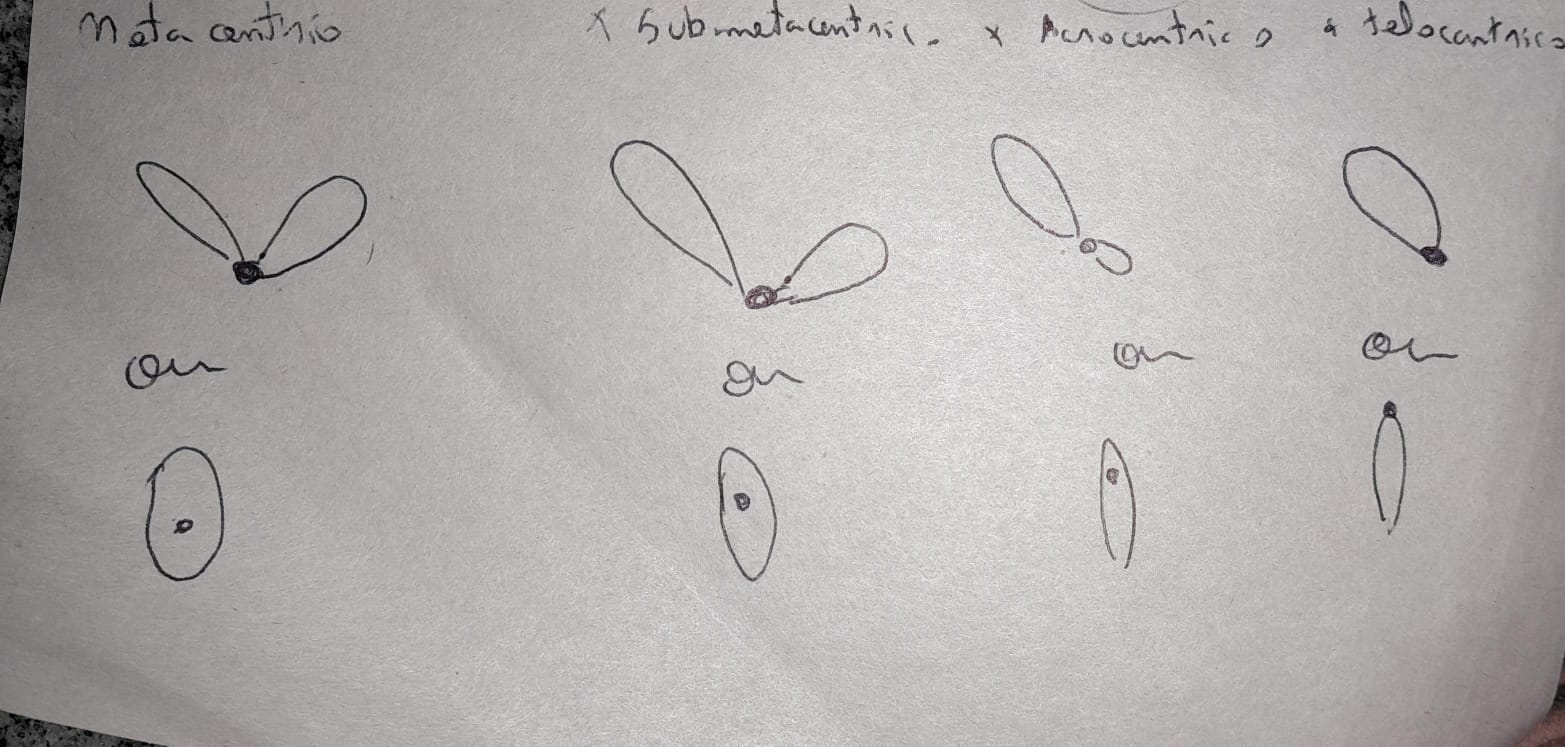 Metacentrio x Submetacentric. x Acrocentric o x telocantrico
or or or or